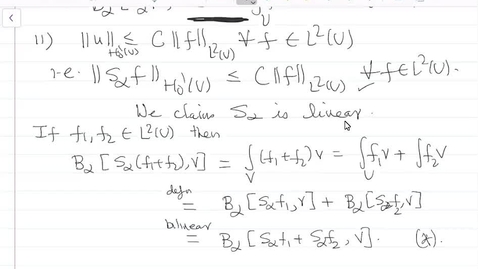 11) ||u||_{H_0^1(U)} ≤ C ||f||_{L^2(U)} ∀ f ∈ L^2(U)
i.e. ||S_2 f||_{H_0^1(U)} ≤ C ||f||_{L^2(U)} ∀ f ∈ L^2(U).
We claim S_2 is linear.
If f_1, f_2 ∈ L^2(U) then
B_2 [S_2(f_1+f_2), v] = ∫_U (f_1+f_2) v = ∫_U f_1 v + ∫ f_2 v
defn = B_2 [S_2 f_1, v] + B_2 [S_2 f_2, v]
bilinear = B_2 [S_2 f_1 + S_2 f_2, v]. (*)